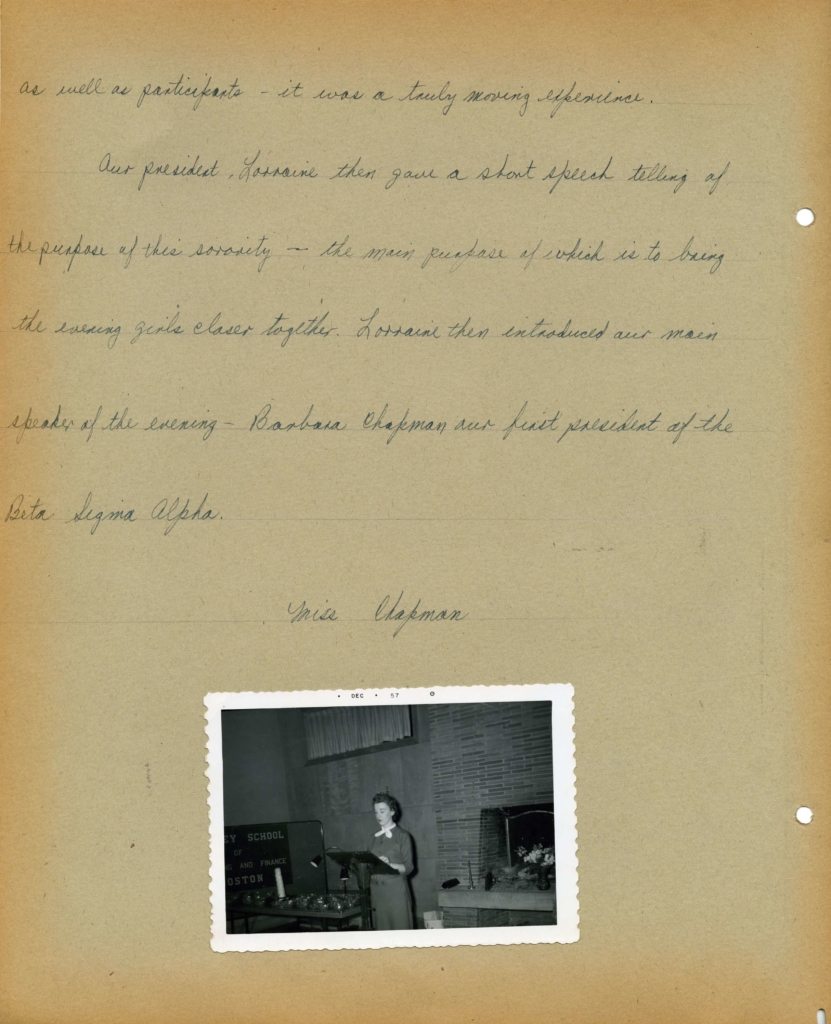 as well as participants - it was a truly moving experience.
Our president, Lorraine then gave a short speech telling of
the purpose of this sorority - the main purpose of which is to bring
the evening girls closer together. Lorraine then introduced our main
speaker of the evening - Barbara Chapman our first president of the
Beta Sigma Alpha.
Miss Chapman
• DEC • 57
EY SCHOOL
OF
NG AND FINANCE
OSTON